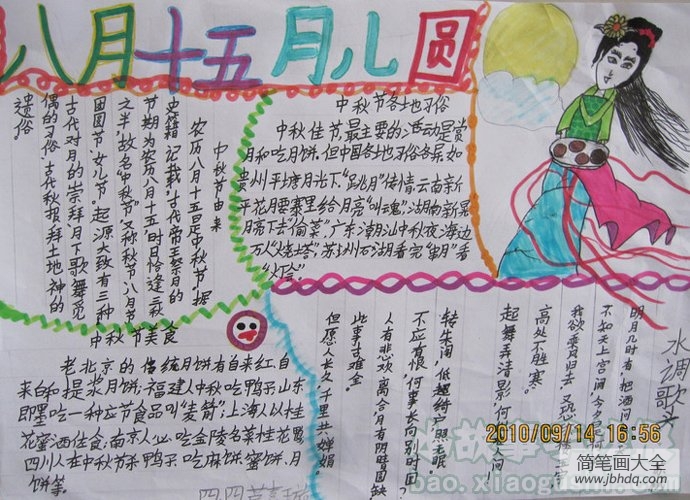 八月十五月儿圆
中秋节由来
农历八月十五是中秋节。据
史籍记载,古代帝王祭月的
节期为农历八月十五,时日恰逢三秋
之半,故名“中秋节”又称秋节、八月节
团圆节、女儿节。起源大致有三种
古代对月的崇拜、月下歌舞觅
偶的习俗,古代秋报拜土地神的
遗俗。
中秋节各地习俗
中秋佳节最主要的活动是赏
月和吃月饼。但中国各地习俗各异,如
贵州平塘月光下“跳月”传情,云南新
平花腰寨里给月亮“叫魂”,湖南新晃
月亮下去“偷菜”,广东潮汕中秋夜海边
万人“烧塔”,苏州石湖看完“串月”看
中秋节美食
老北京的传统月饼有自来红、自
来白和提浆月饼;福建人中秋吃鸭子;山东
即墨吃一种应节食品叫“麦箭”;上海人以桂
花蜜酒佐食,南京人必吃金陵名菜桂花鸭
四川人在中秋节杀鸭子、吃麻饼、蜜饼、月
饼等。
水调歌头
明月几时有,把酒问
不知天上宫阙,今夕何
我欲乘归去,又恐
高处不胜寒。
起舞弄清影,何
转朱阁,低绮户,照无眠。
不应有恨,何事长向别时圆?
人有悲欢离合,月有阴晴圆缺
此事古难全。
但愿人长久,千里共婵娟。
2010/09/14 16:56
简笔画大全
www.jbhdq.com